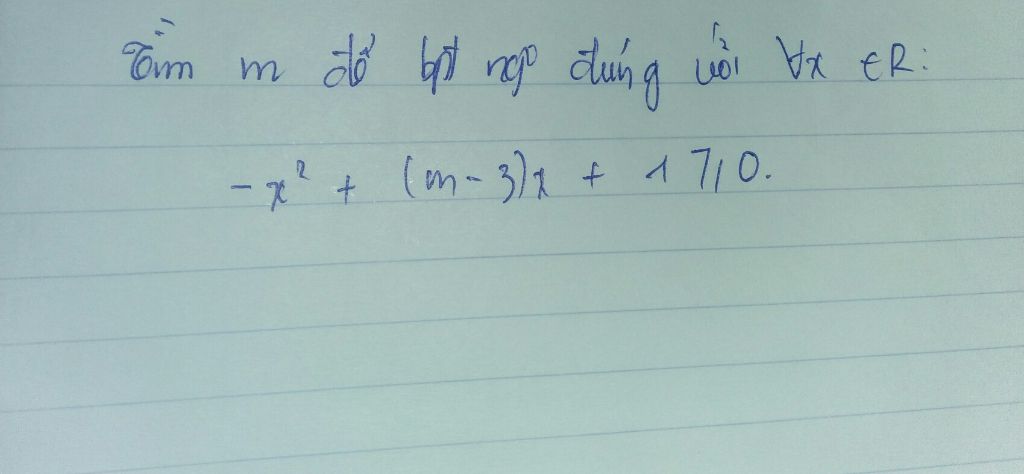 Tìm m để bpt ngo đúng với ∀x ∈ R:
-x² + (m-3)x + 1 ⩾ 0.